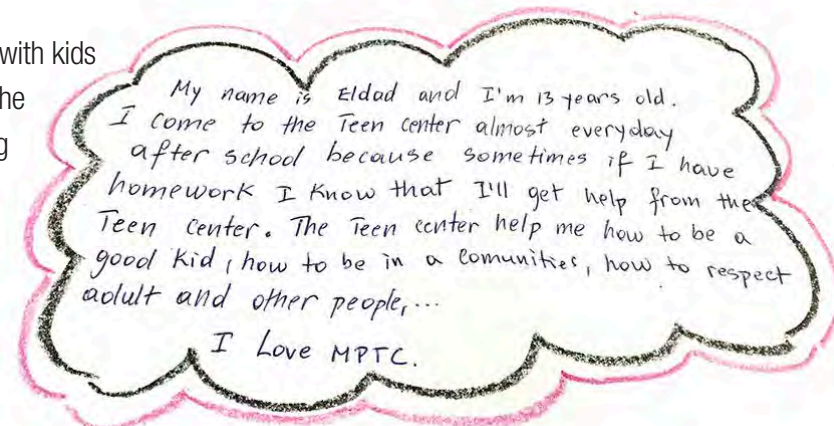 with kids
he
g
My name is Eldad and I'm 13 years old.
I come to the Teen center almost everyday
after school because sometimes if I have
homework I know that I'll get help from the
Teen center. The Teen center help me how to be a
good kid, how to be in a comunities, how to respect
adult and other people,...
I Love MPTC.